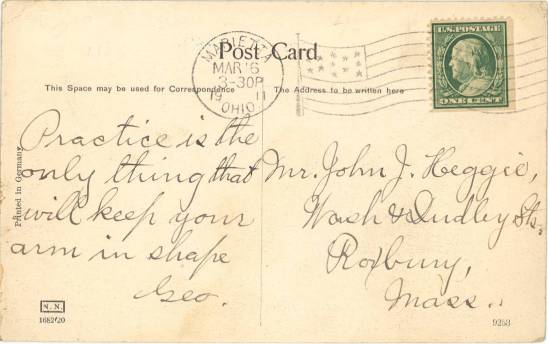 Post Card
MARIETTA
MAR 6
3-30P
19 11
OHIO
U.S. POSTAGE
ONE CENT
This Space may be used for Correspondence
The Address to be written here
Practice is the
only thing that
will keep your
arm in shape
Geo.
Mr. John J. Heggie,
Wash & Dudley Sts.
Roxbury,
Mass.
Printed in Germany
N.N.
1682/20
9253